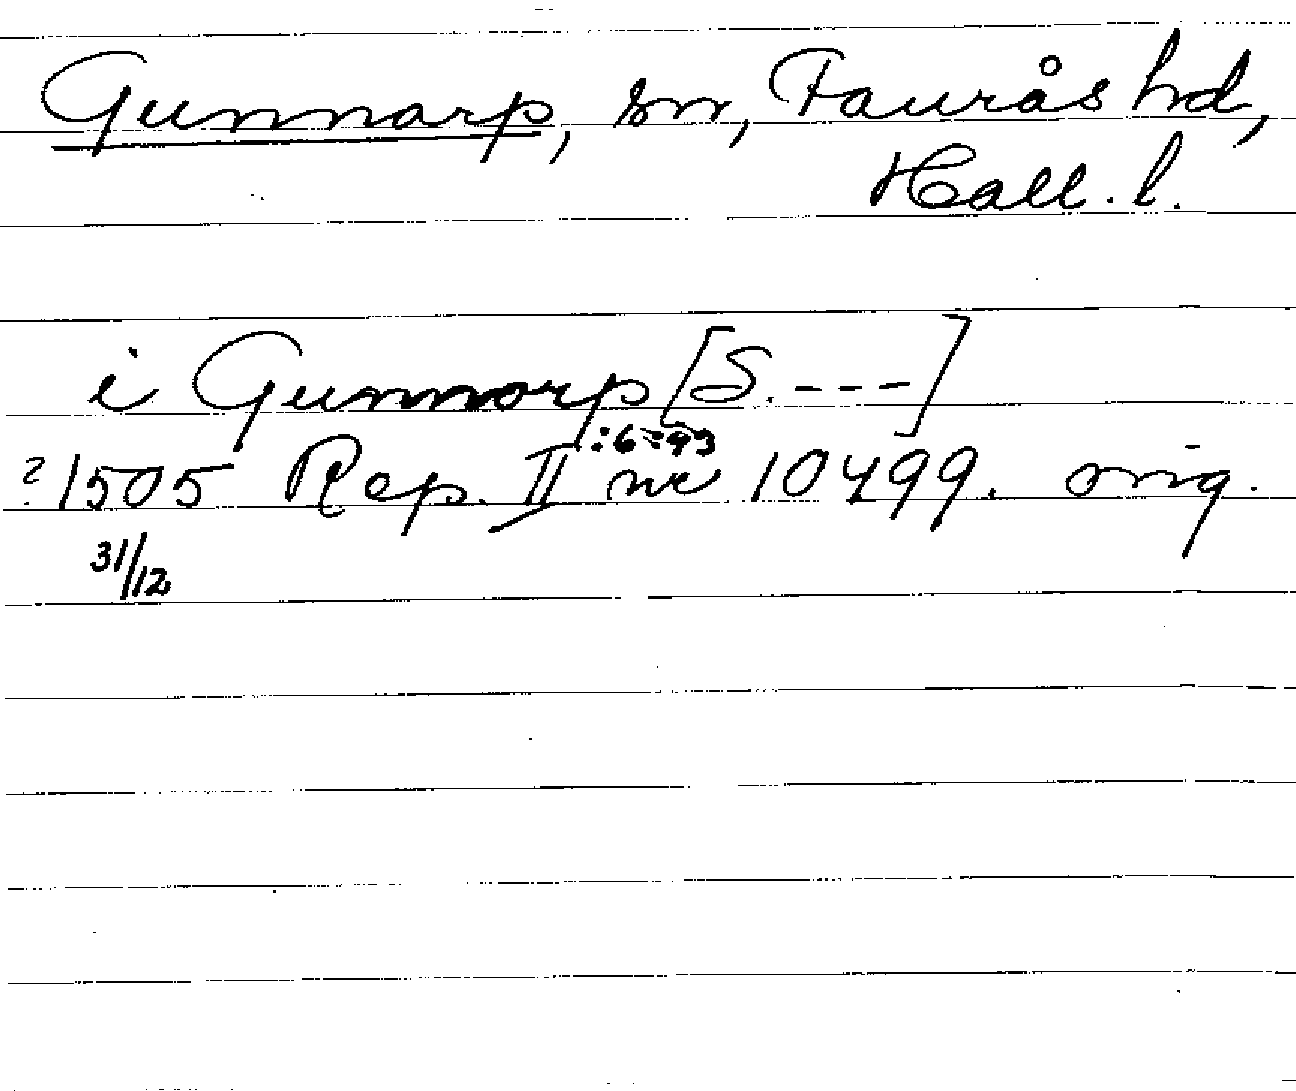 Gunnarp, sn, Faurås hd,
Hall. l.
i Gunnorp [S. ---]
?1505 Rep. II :6 = 93 nr 10499. orig.
31/12